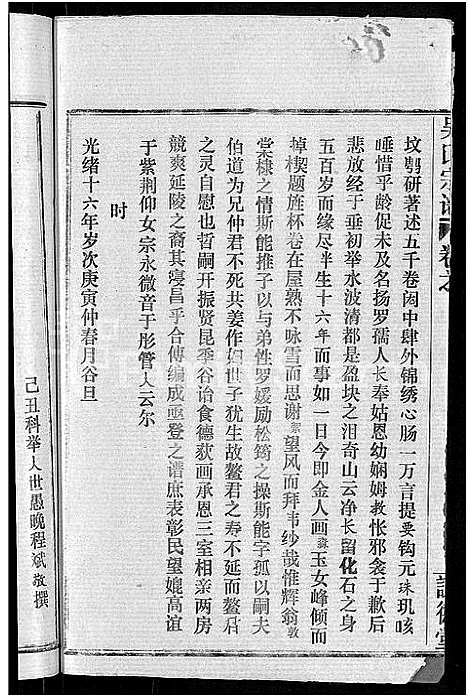 坟鹗研著述五千卷闳中肆外锦绣心肠一万言提要钩元珠玑咳
唾惜乎龄促未及名扬罗孺人长奉姑恩幼娴姆教怅邪衾于歉后
悲放经于垂初举水波清都是盈块之泪奇山云净长留化石之身
五百岁而缘尽半生十六年而事如一日今即金人画玉女峰倾而
棹楔题旌杯卷在屋熟不咏雪而思谢望风而拜韦纱哉惟辉翁敦
棠棣之情斯能推子以与弟性罗媛励松筠之操斯能字孤以嗣夫
伯道为兄仲君不死共姜作妇世子犹生故鳌君之寿不延而鳌君
之灵自慰也哲嗣开振贤昆季谷诒食德荻画承恩三室相亲两房
競爽延陵之裔其寝昌乎合傅编成亟登之谱庶表彰民望媲高谊
于紫荆仰女宗永微音于彤管人云尔
时
光绪十六年岁次庚寅仲春月谷旦
己丑科举人世愚晚程斌敬撰
吴氏宗谱
卷之